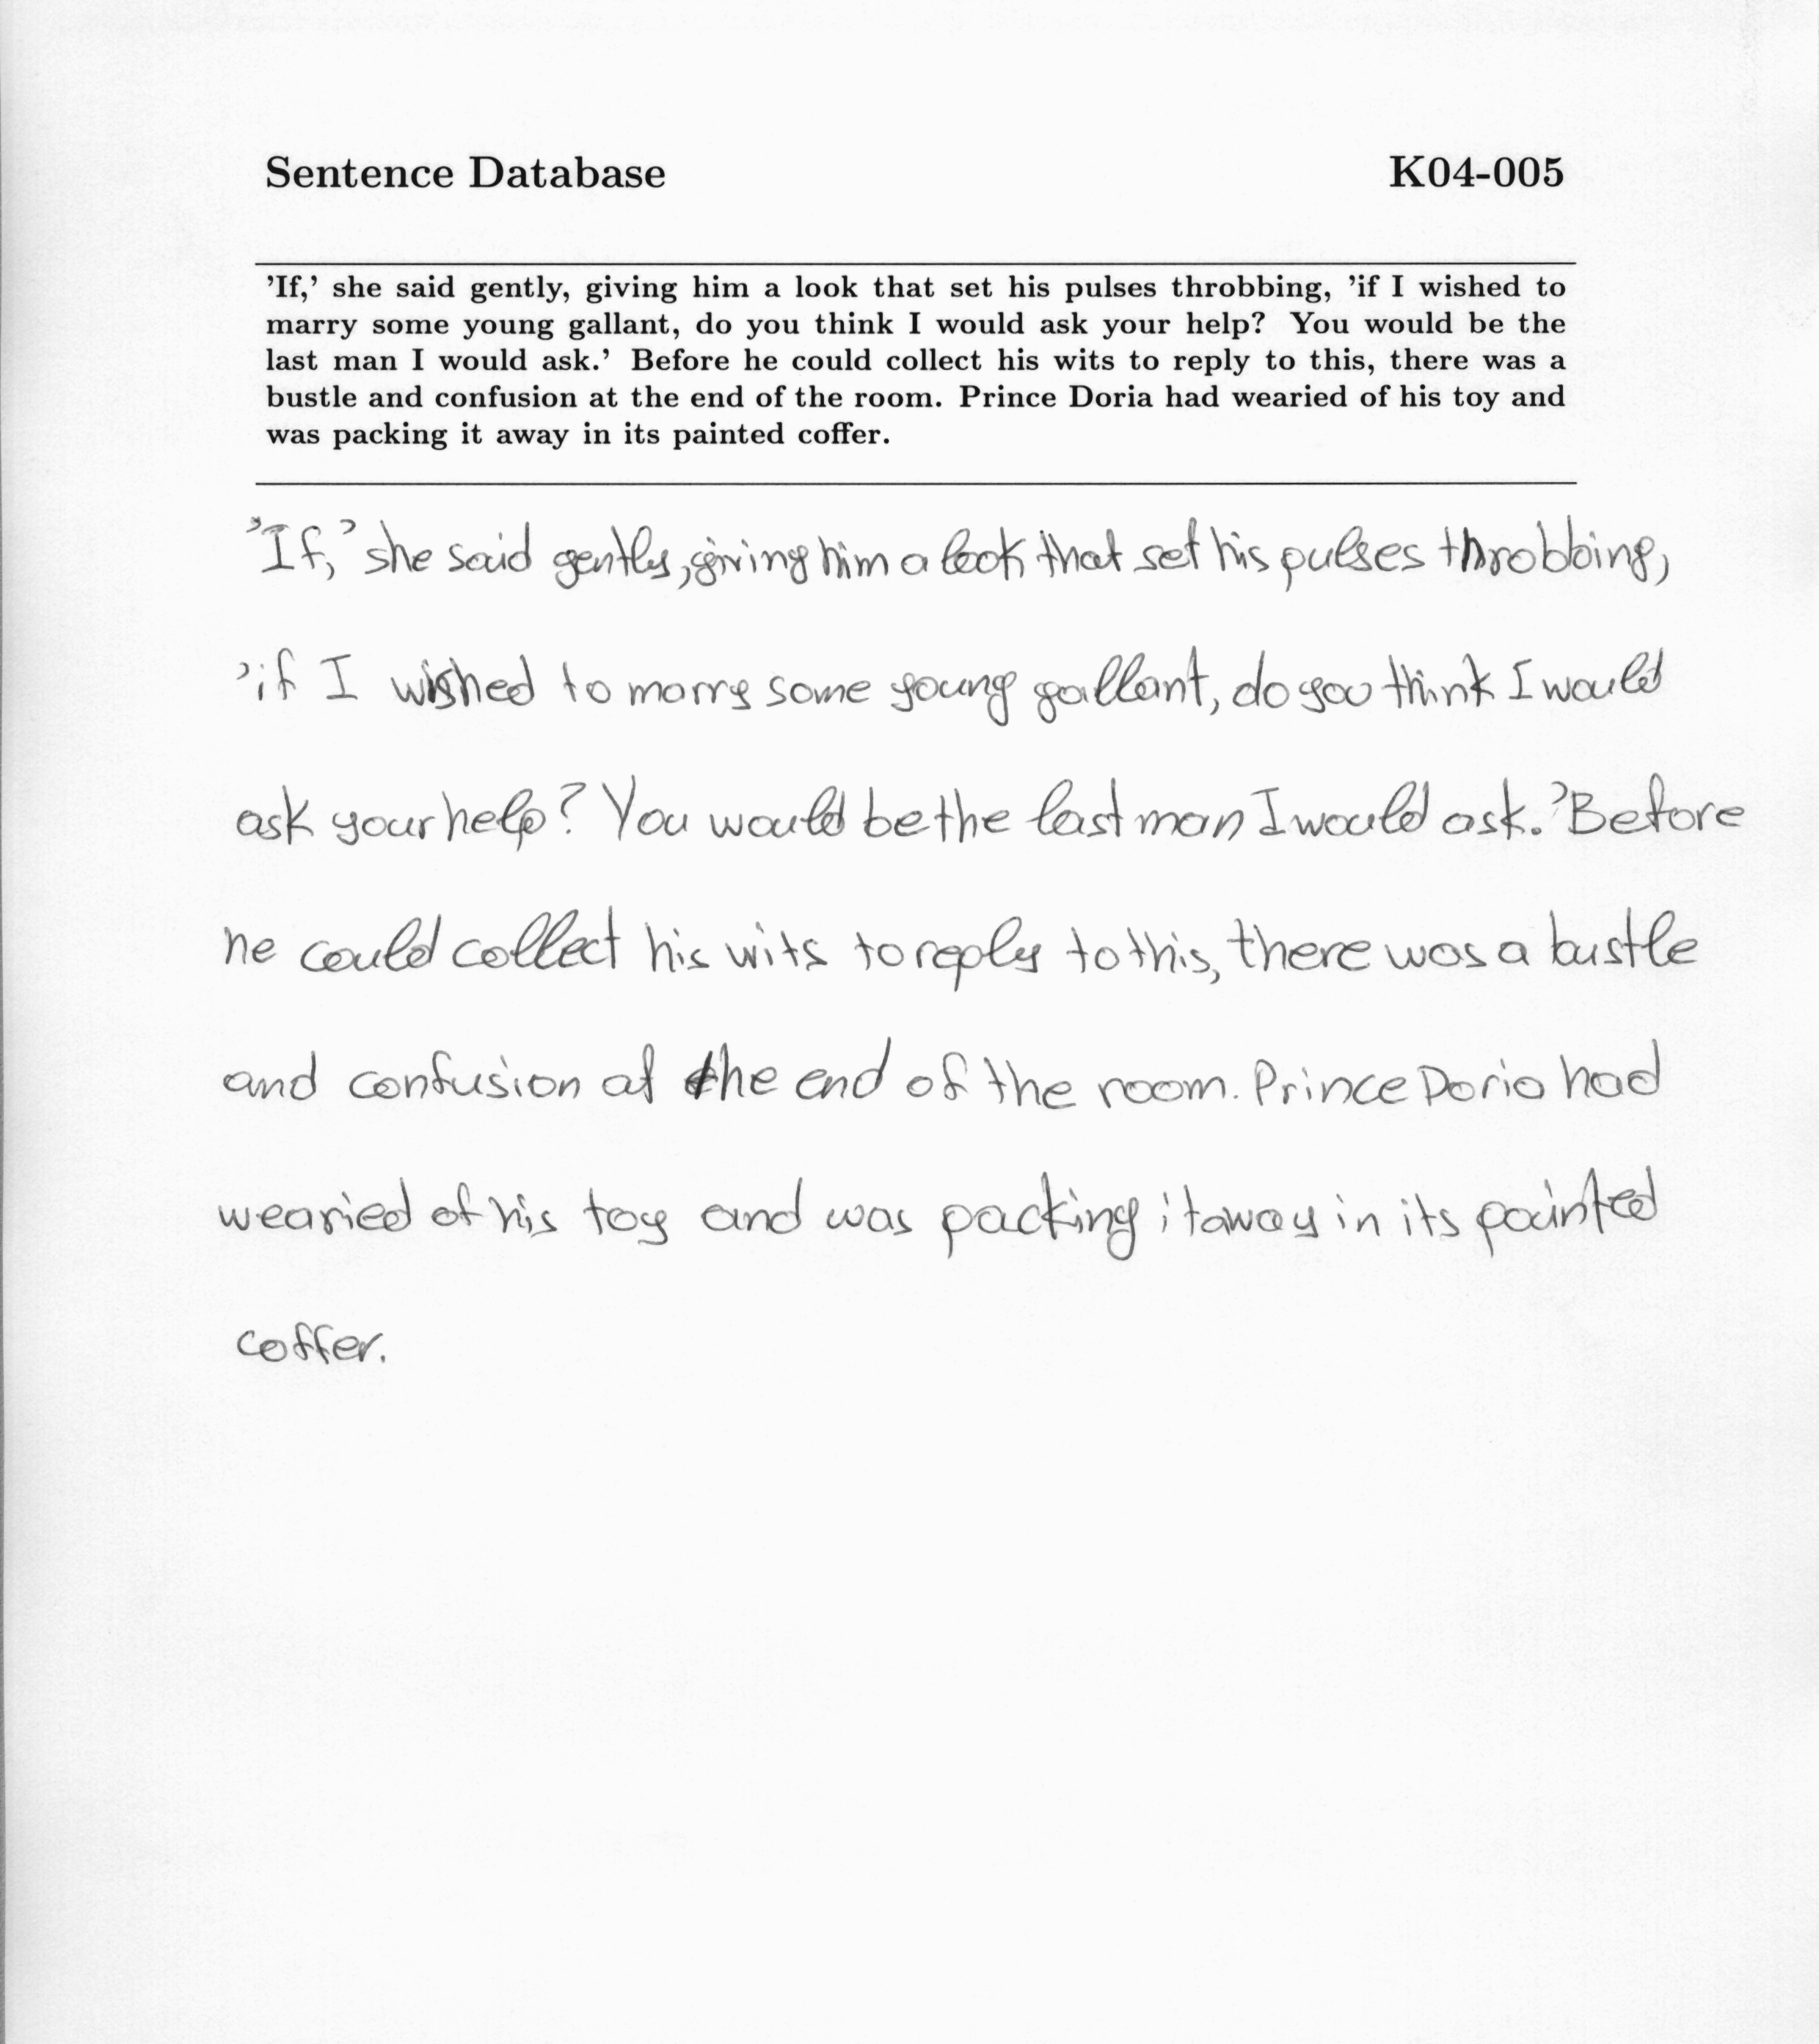 Sentence Database K04-005
'If,' she said gently, giving him a look that set his pulses throbbing, 'if I wished to
marry some young gallant, do you think I would ask your help? You would be the
last man I would ask.' Before he could collect his wits to reply to this, there was a
bustle and confusion at the end of the room. Prince Doria had wearied of his toy and
was packing it away in its painted coffer.
'If,' she said gently, giving him a look that set his pulses throbbing,
'if I wished to marry some young gallant, do you think I would
ask your help? You would be the last man I would ask.' Before
he could collect his wits to reply to this, there was a bustle
and confusion at the end of the room. Prince Doria had
wearied of his toy and was packing it away in its painted
coffer.